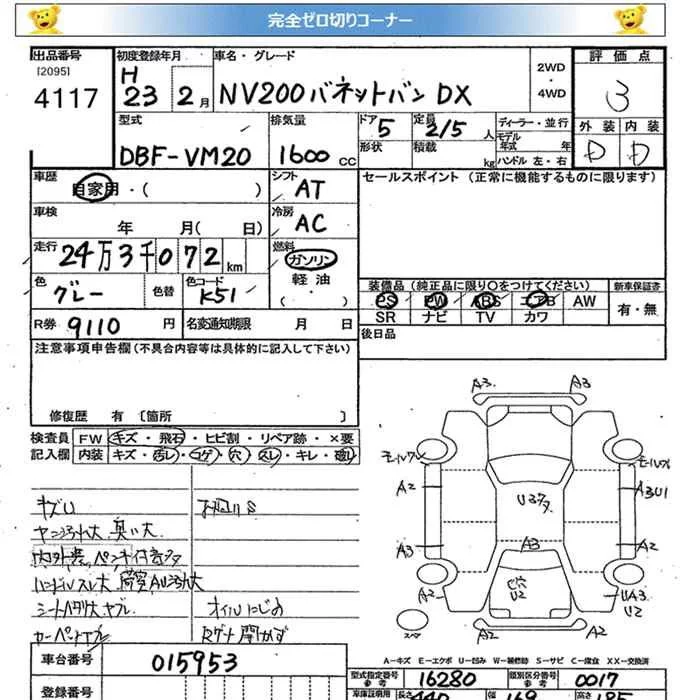 完全ゼロ切りコーナー
出品番号
[2095]
4117
初度登録年月
H
23 2月
車名・グレード
NV200バネットバン DX
2WD
・
4WD
評価点
3
型式
DBF-VM20
排気量
1600 cc
ドア 5
定員 2/5 人
形状
積載 kg
ディーラー・並行
モデル
年式 年
ハンドル 左・右
外装 内装
D D
車歴
自家用・( )
シフト
AT
セールスポイント (正常に機能するものに限ります)
車検
年 月( 日)
冷房
AC
走行
24万3千072 km
燃料
ガソリン
・
軽油
・
( )
色
グレー
色替
色コード
K51
装備品 (純正品に限り〇をつけてください)
PS PW ABS エアB AW
SR ナビ TV カワ
新車保証書
有・無
R券 9110 円
名変通知期限 月 日
後日品
注意事項申告欄 (不具合内容等は具体的に記入して下さい)
修復歴 有 〔箇所 〕
検査員
記入欄
FW キズ・飛石・ヒビ割・リペア跡・×要
内装 キズ・汚レ・コゲ・穴・スレ・キレ・破レ
キズU
ヤニ汚れ大 臭い大
ハンドルスレ大
シートヘタリ大 ヤブレ
カーペットヤブレ
オイルにじみ
Rゲート開かず
A3 A3
A2 A3U1
U3
A3 A3 A2
穴
U2
A2 UA3
U2
A2 A2
スペア
A-キズ E-エクボ U-凹み W-補修跡 S-サビ C-腐食 XX-交換済
車台番号 015953
型式指定番号
参考
16280
類別区分番号
参考
0017
登録番号
車庫証明用
参考
長さ 440 幅 169 高さ 185